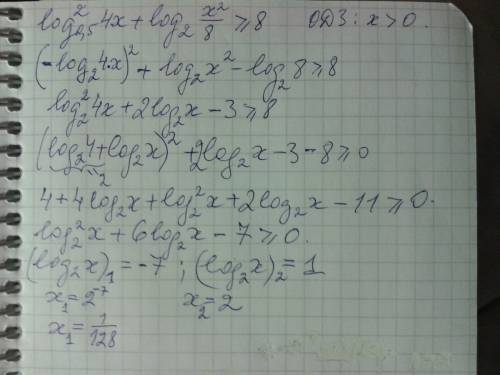 log²₀,₅ 4x + log₂ x²/8 ⩾ 8 ОДЗ: x > 0.
(-log₂4x)² + log₂x² - log₂8 ⩾ 8
log²₂4x + 2log₂x - 3 ⩾ 8
(log₂4 + log₂x)² + 2log₂x - 3 - 8 ⩾ 0
2
4 + 4log₂x + log²₂x + 2log₂x - 11 ⩾ 0.
log²₂x + 6log₂x - 7 ⩾ 0.
(log₂x)₁ = -7 ; (log₂x)₂ = 1
x₁ = 2⁻⁷ x₂ = 2
x₁ = 1/128